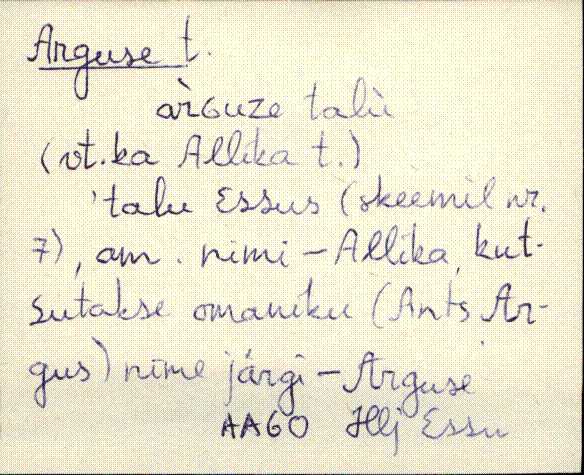 Arguse t.
àrGuze talù
(vt.ka Allika t.)
'talu Essus (skeemil nr.
7), am. nimi – Allika, kut-
sutakse omaniku (Ants Ar-
gus) nime järgi – Arguse'
AAGO Hlj Essu